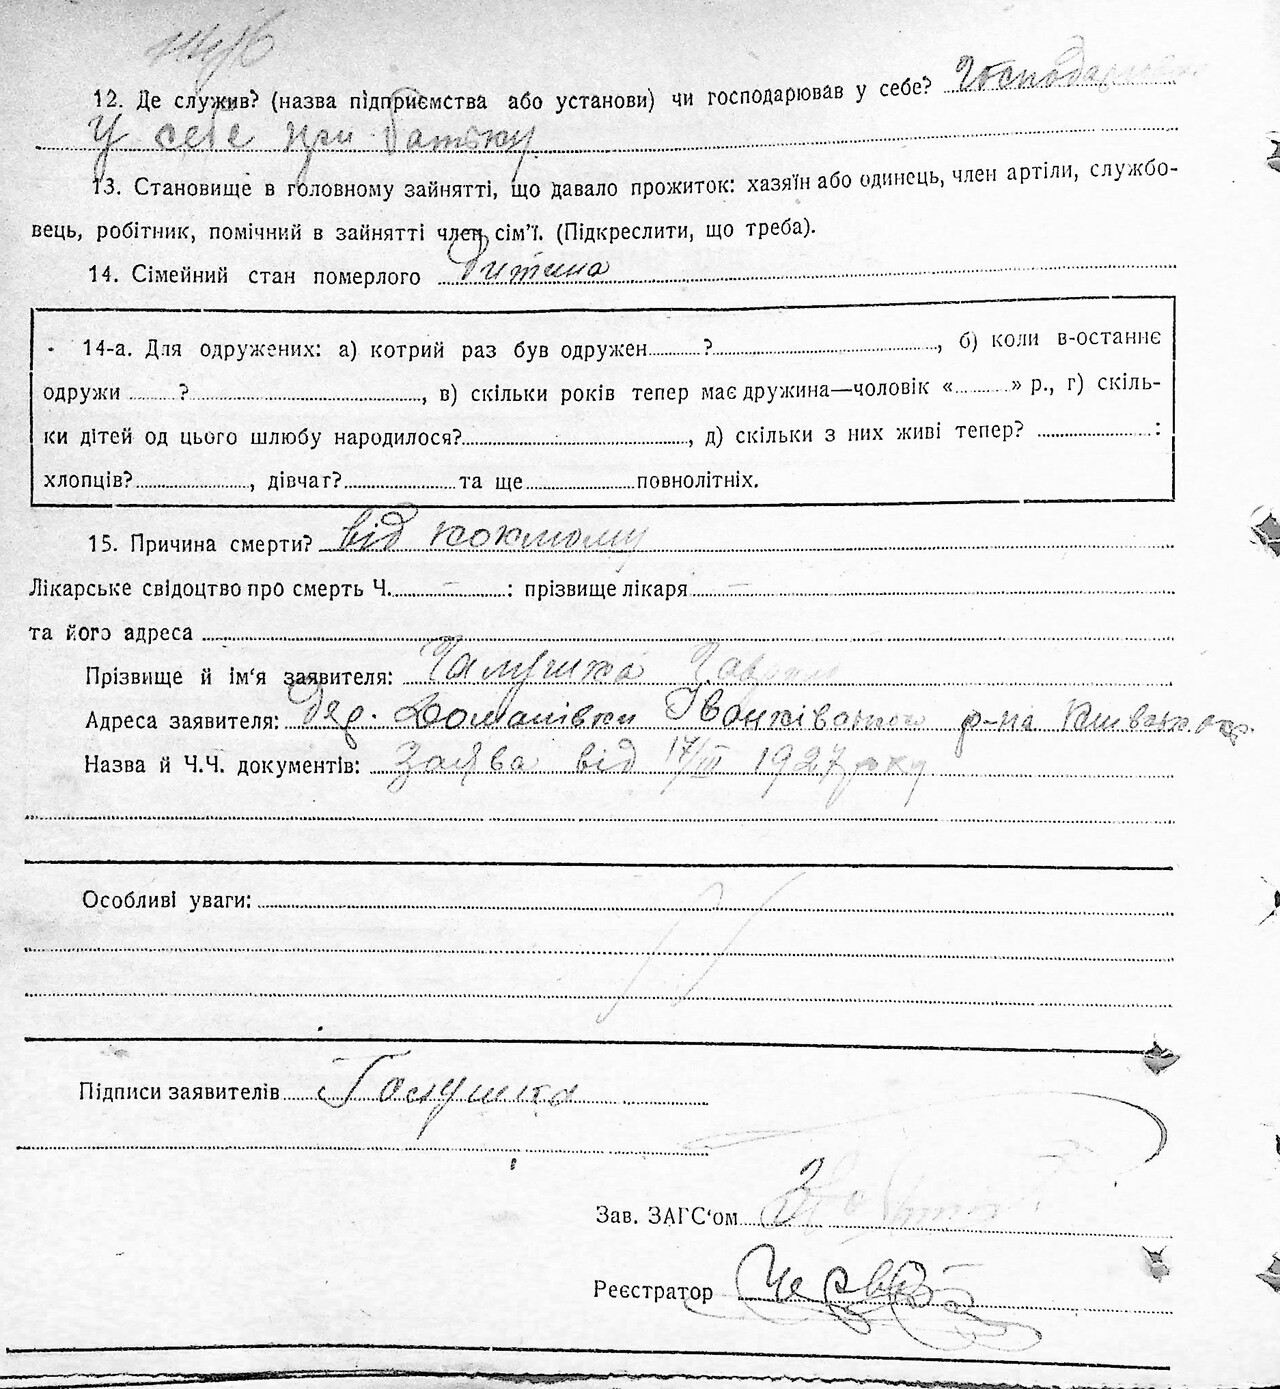 12. Де служив? (назва підприємства або установи) чи господарював у себе? Господарював
У себе при батьку
13. Становище в головному зайнятті, що давало прожиток: хазяїн або одинець, член артіли, службо-
вець, робітник, помічний в зайнятті член сім'ї. (Підкреслити, що треба).
14. Сімейний стан померлого дитина
14-а. Для одружених: а) котрий раз був одружен ? , б) коли в-останнє
одружи ? , в) скільки років тепер має дружина—чоловік « » р., г) скіль-
ки дітей од цього шлюбу народилося? , д) скільки з них живі тепер? :
хлопців? , дівчат? та ще повнолітніх.
15. Причина смерти? від коклюму
Лікарське свідоцтво про смерть Ч. — : прізвище лікаря —
та його адреса
Прізвище й ім'я заявителя: Галушка
Адреса заявителя: Дер. Доманівки Іванківського р-на Київськ. окр.
Назва й Ч.Ч. документів: Заява від 17/III 1927 року
Особливі уваги:
Підписи заявителів Галушка
Зав. ЗАГС'ом
Реєстратор